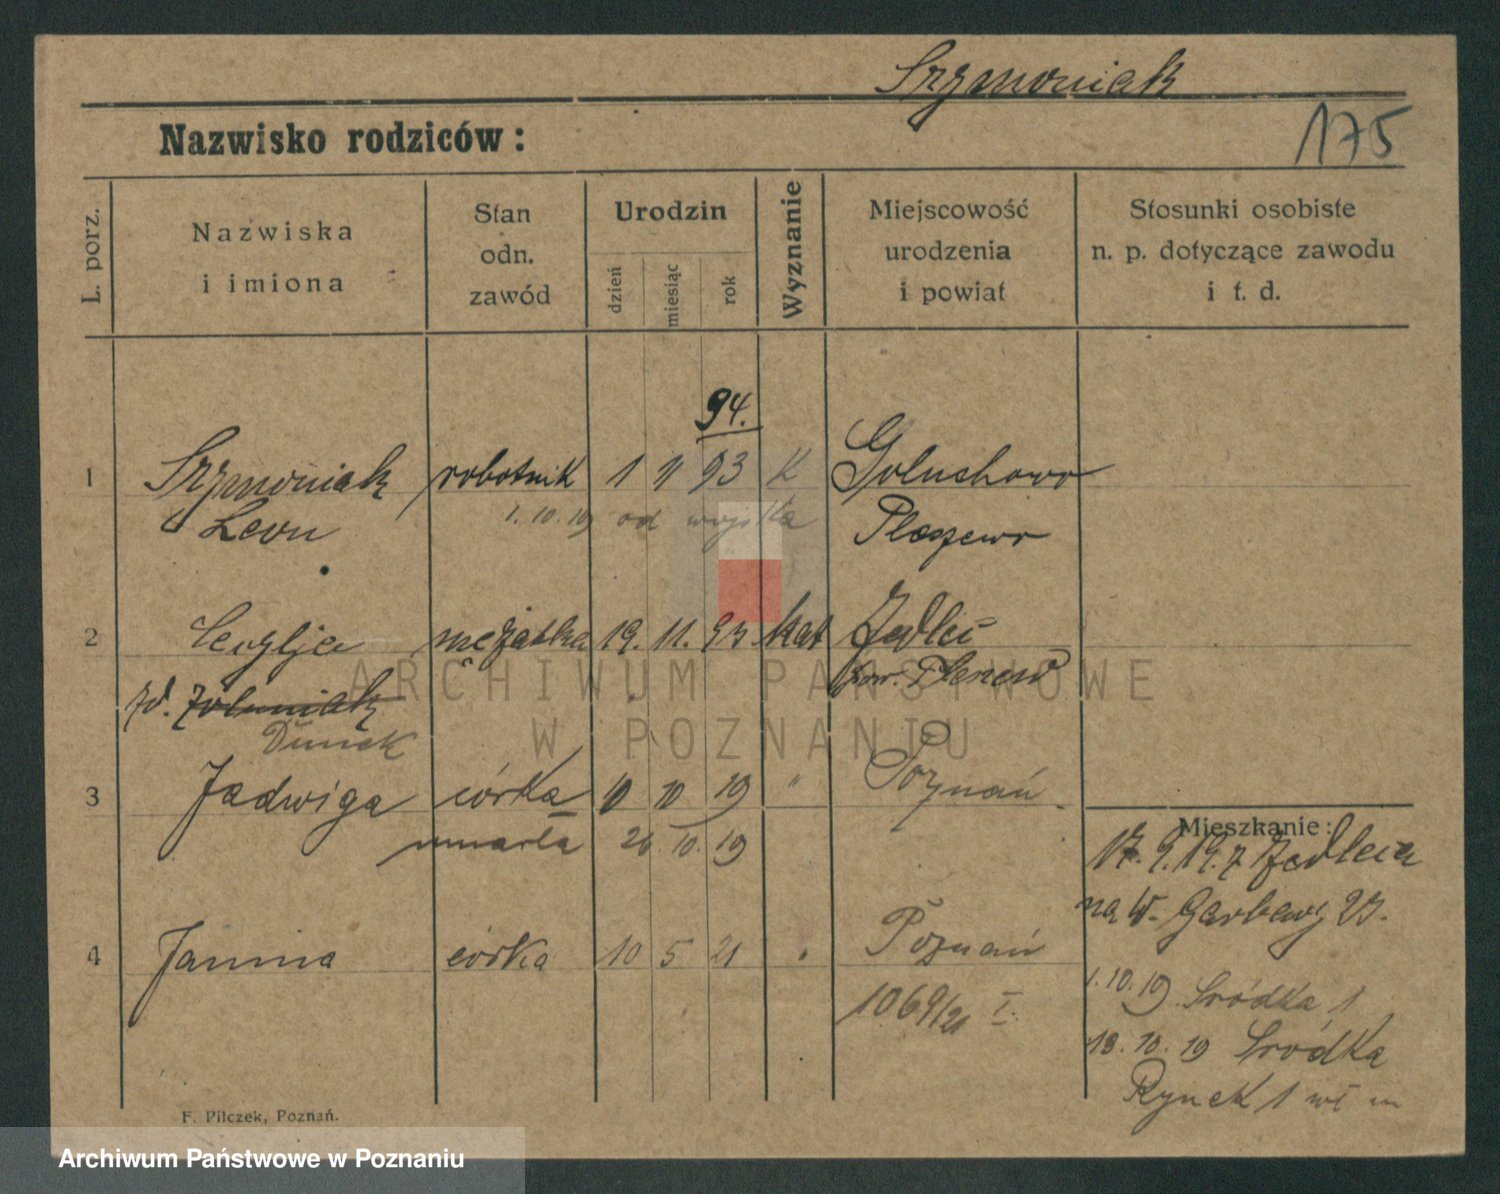 Szymoniak
Nazwisko rodziców:
175
L. porz.
Nazwiska
i imiona
Stan
odn.
zawód
Urodzin
dzień
miesiąc
rok
Wyznanie
Miejscowość
urodzenia
i powiat
Stosunki osobiste
n. p. dotyczące zawodu
i t. d.
94.
1 Szymoniak robotnik 1 11 93 K Goluchowo
Leon 1.10.19 od wojska Pleszewo
2 mężatka 19. 11. 93. kat Jedlec
pow.
zd.
Dunek
3 Jadwiga córka 10 10 19 " Poznań
umarła 26. 10. 19
Mieszkanie:
17. 9. 19. z Jedlca
na W. Garbary 25.
4 Janina córka 10 5 21 " Poznań
1069/21 I.
1.10.19 Sródka 1
13. 10. 19 Sródka
Rynek 1
F. Pilczek, Poznań.
ARCHIWUM PAŃSTWOWE
W POZNANIU
Archiwum Państwowe w Poznaniu